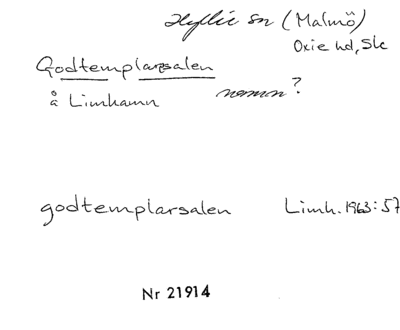 Hyllie sn (Malmö)
Oxie hd, Sk
Godtemplarsalen
å Limhamn namn?
godtemplarsalen Limh. 1963:57
Nr 21914